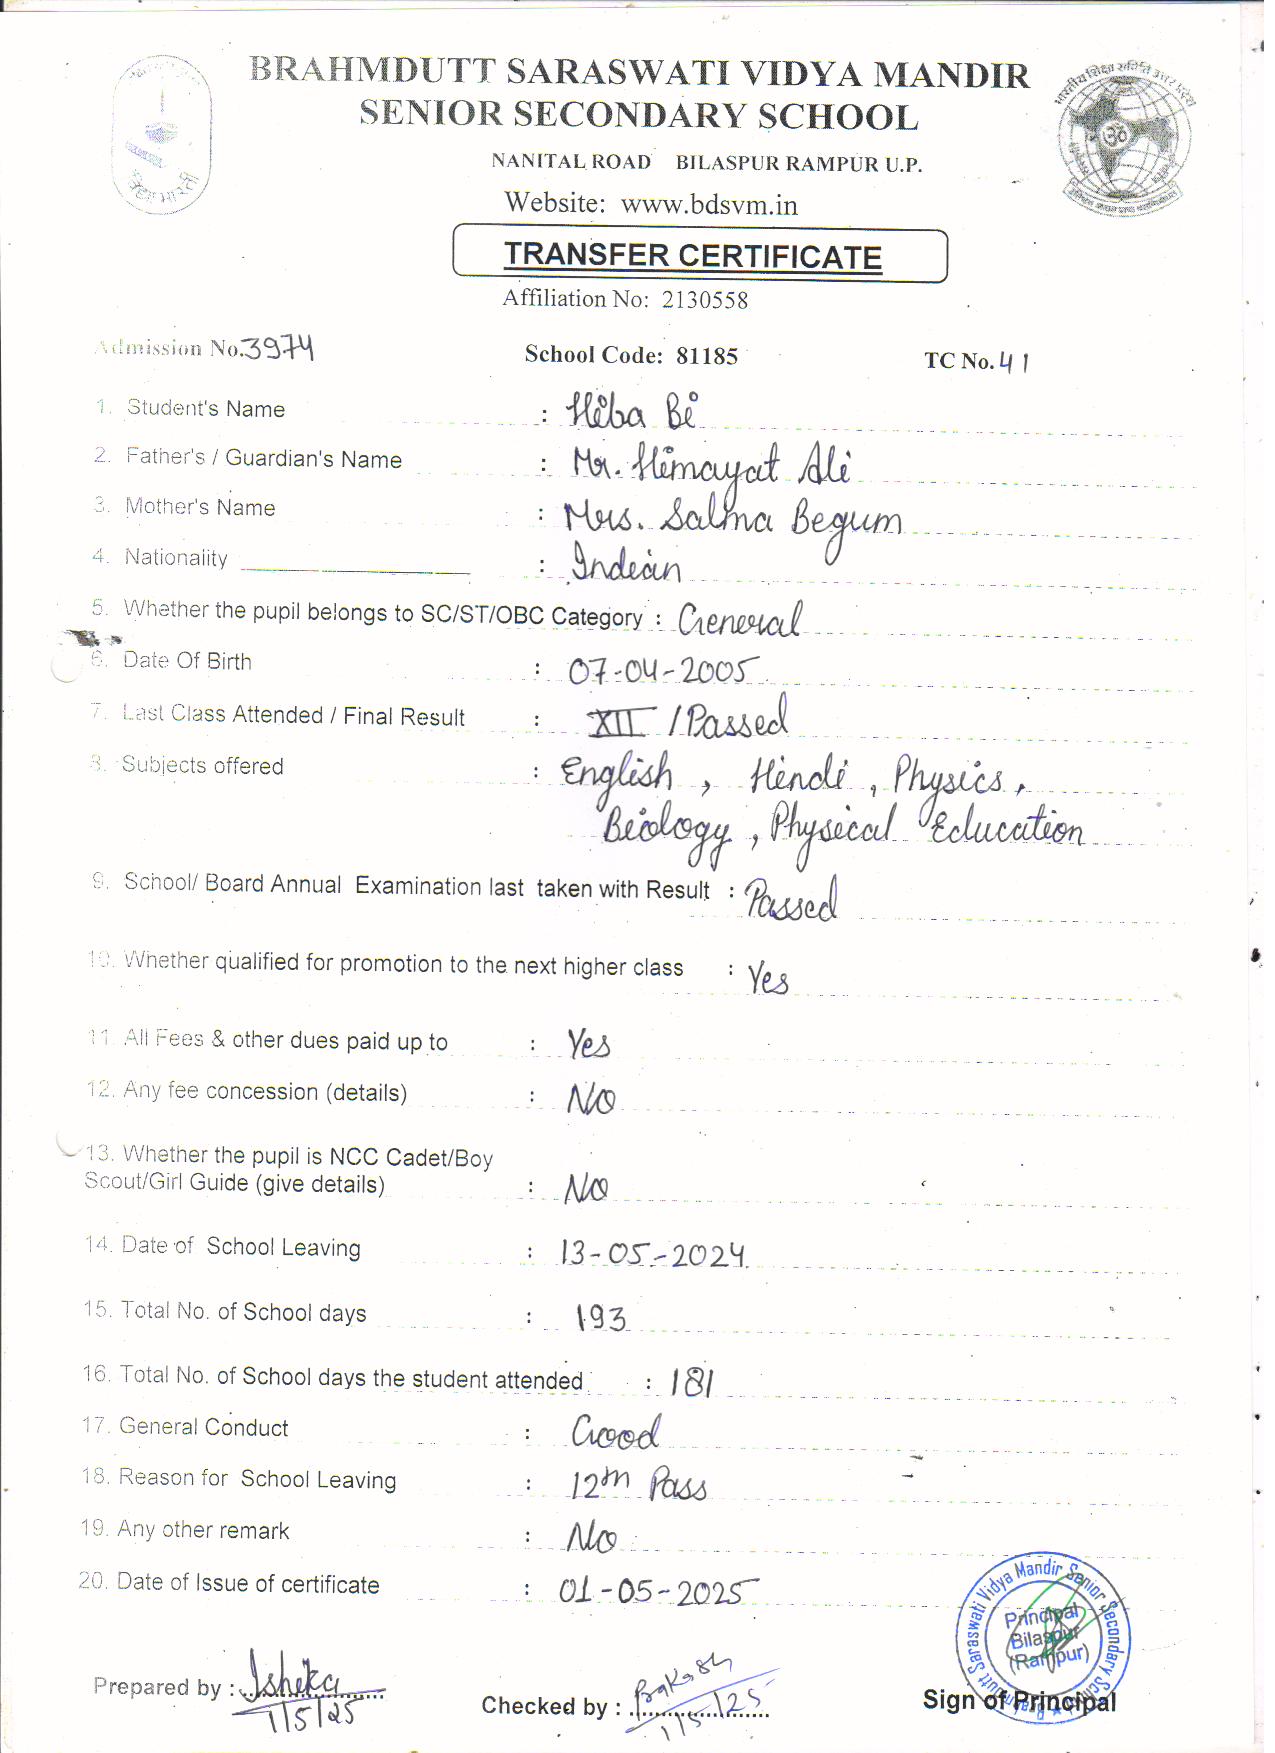 BRAHMDUTT SARASWATI VIDYA MANDIR
SENIOR SECONDARY SCHOOL
NANITAL ROAD BILASPUR RAMPUR U.P.
भारतीय शिक्षा समिति उत्तर प्रदेश
Website: www.bdsvm.in
TRANSFER CERTIFICATE
Affiliation No: 2130558
Admission No. 3974 School Code: 81185 TC No. 41
1. Student's Name : Hiba Bi
2. Father's / Guardian's Name : Mr. Himayat Ali
3. Mother's Name : Mrs. Salma Begum
4. Nationality : Indian
5. Whether the pupil belongs to SC/ST/OBC Category : General
6. Date Of Birth : 07-04-2005
7. Last Class Attended / Final Result : XII / Passed
8. Subjects offered : English, Hindi, Physics,
Biology, Physical Education
9. School/ Board Annual Examination last taken with Result : Passed
10. Whether qualified for promotion to the next higher class : Yes
11. All Fees & other dues paid up to : Yes
12. Any fee concession (details) : No
13. Whether the pupil is NCC Cadet/Boy
Scout/Girl Guide (give details) : No
14. Date of School Leaving : 13-05-2024
15. Total No. of School days : 193
16. Total No. of School days the student attended : 181
17. General Conduct : Good
18. Reason for School Leaving : 12th Pass
19. Any other remark : No
20. Date of Issue of certificate : 01-05-2025
Brahmdutt Saraswati Vidya Mandir Senior Secondary School
Principal
Bilaspur
(Rampur)
Prepared by : Isheka
1/5/25
Checked by : Prakash
1/5/25
Sign of Principal